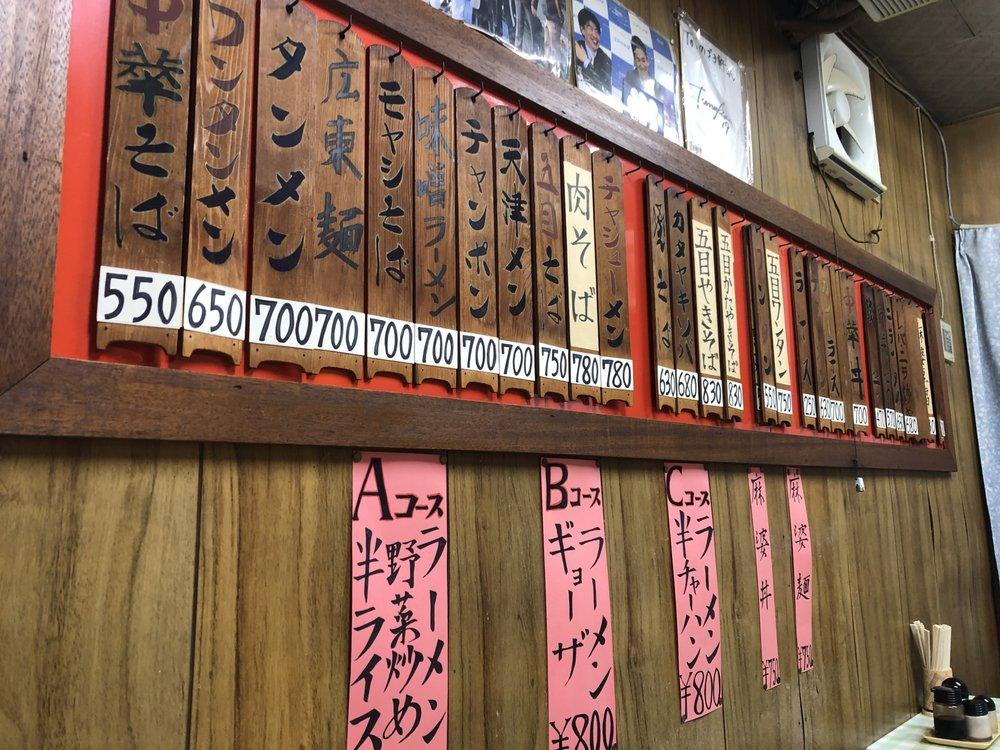 中華そば
550
ワンタンメン
650
タンメン
700
広東麺
700
モヤシそば
700
味噌ラーメン
700
チャンポン
700
天津メン
700
五目そば
750
肉そば
780
チャシューメン
780
630
カタヤキソバ
680
五目やきそば
830
五目かたやきそば
830
550
五目ワンタン
750
250
700
中華丼
700
Aコース
ラーメン
野菜炒め
半ライス
Bコース
ラーメン
ギョーザ
¥800
Cコース
ラーメン
半チャーハン
¥800
麻婆丼
¥750
麻婆麺
¥750